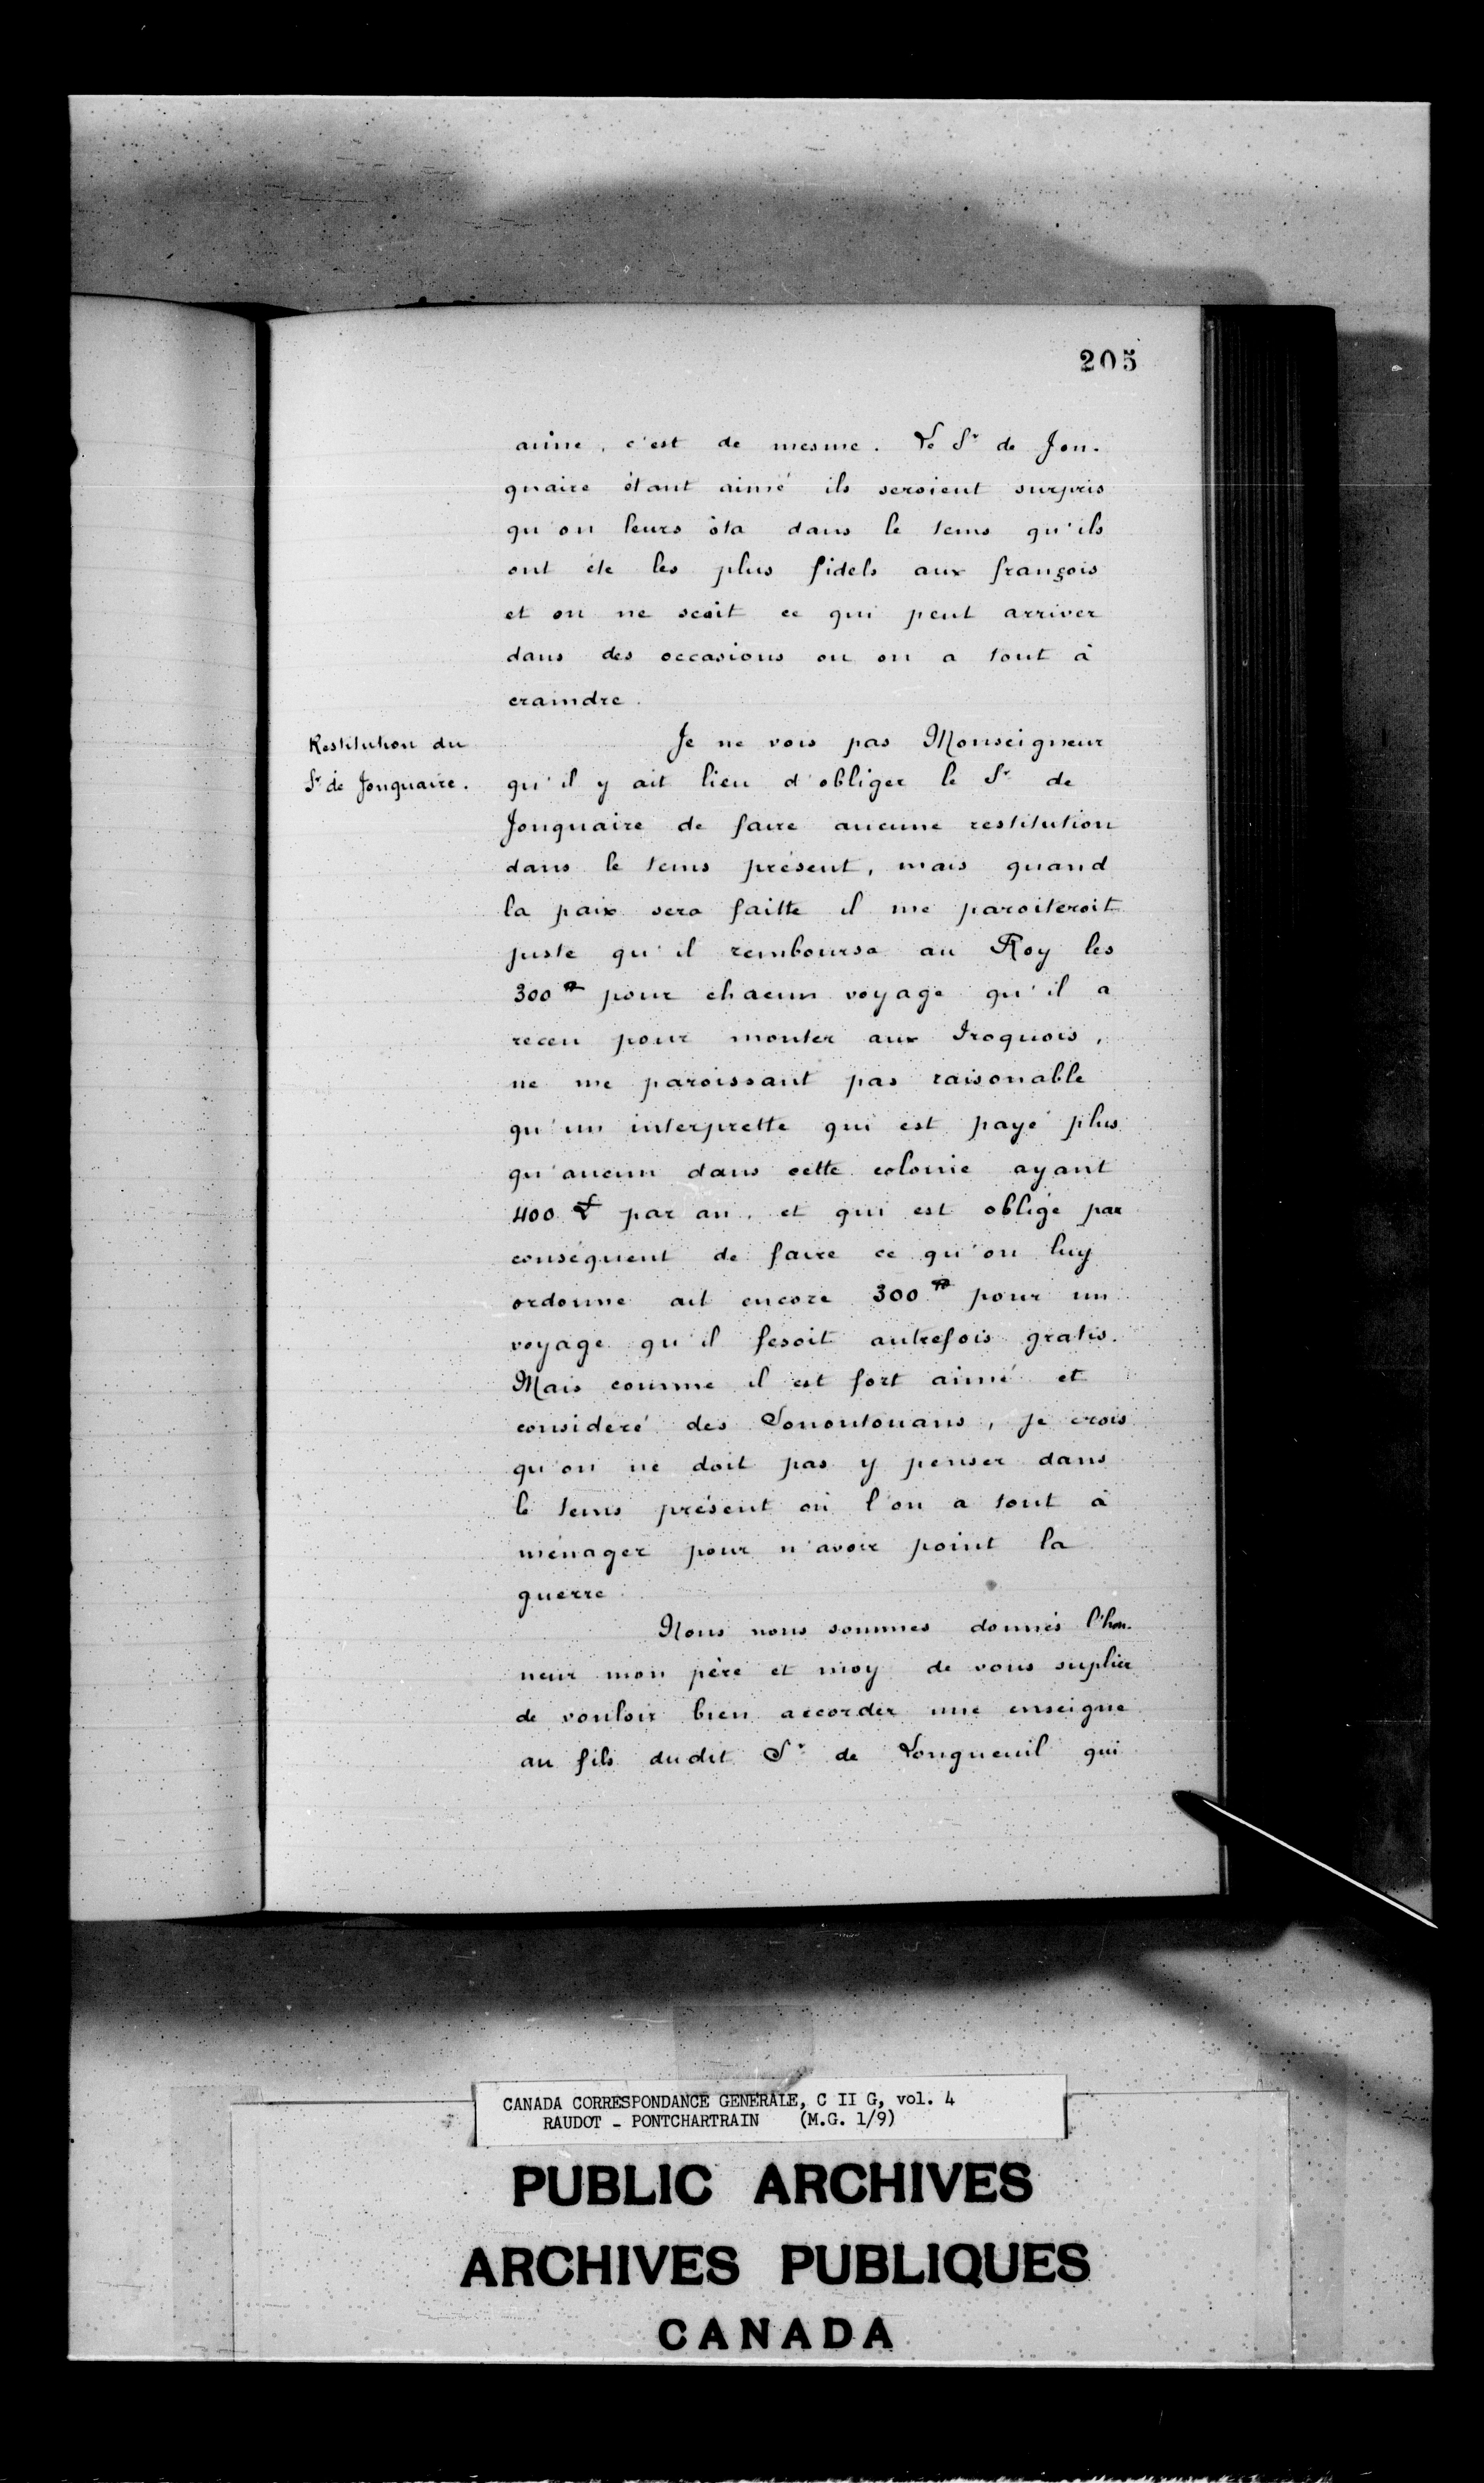 205
aime, c'est de mesme. Le Sr de Jon-
quaire étant aimé ils seroient surpris
qu'on leurs ôta dans le tems qu'ils
ont éte les plus fidels aux françois
et on ne scait ce qui peut arriver
dans des occasions ou on a tout à
craindre.
Restitution du
Sr de Jonquaire.
Je ne vois pas Monseigneur
qu'il y ait lieu d'obliger le Sr de
Jonquaire de faire aucune restitution
dans le tems présent, mais quand
la paix sera faitte il me paroiteroit
juste qu'il rembourse au Roy les
300 # pour chacun voyage qu'il a
receu pour monter aux Iroquois,
ne me paroissant pas raisonable
qu'un interprette qui est payé plus
qu'aucun dans cette colonie ayant
400 £ par an, et qui est obligé par
conséquent de faire ce qu'on luy
ordonne ait encore 300 # pour un
voyage qu'il fesoit autrefois gratis.
Mais comme il est fort aimé et
consideré des Sonontouans, je crois
qu'on ne doit pas y penser dans
le tems présent où l'on a tout à
ménager pour n'avoir point la
guerre.
Nous nous sommes donnés l'hon-
neur mon père et moy de vous suplier
de vouloir bien accorder une enseigne
au fils dudit Sr de Longueuil qui
CANADA CORRESPONDANCE GENERALE, C II G, vol. 4
RAUDOT - PONTCHARTRAIN (M.G. 1/9)
PUBLIC ARCHIVES
ARCHIVES PUBLIQUES
CANADA